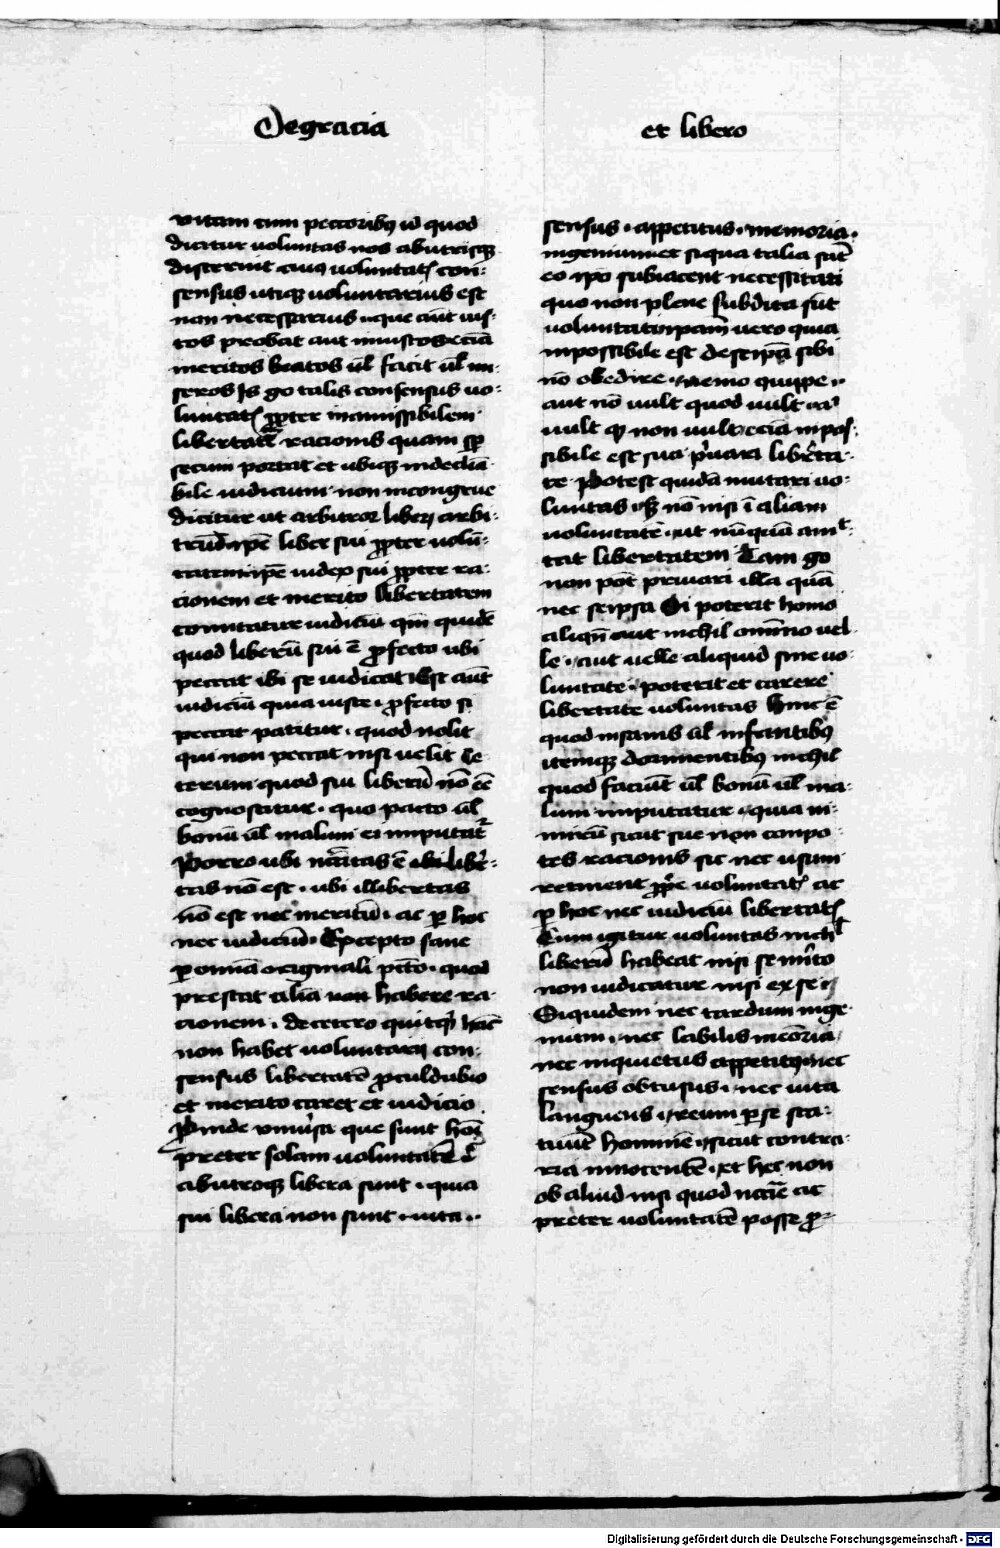 De gracia
et libero
vitam cum peccoribꝫ id quod
dicitur voluntas nos abutrisqꝫ
discernit cuiꝰ voluntatꝭ con-
sensus utiqꝫ voluntarius est
non necessarius · que aut ius-
tos probat aut iniustos · eciā
meritos beatos ul̄ facit ul̄ mi-
seros Is g̊ talis consensus vo-
luntatꝭ ꝓpter inamissibilem
libertatē racionis quam sꝑ
secum portat et ubiqꝫ indeclīa-
bile iudicium · non incongrue
dicitur ut arbitror liberꝝ arbi-
triū · ip̄e liber sui ꝓpter volū-
tatem · ip̄e iudex sui ꝓpter ra-
cionem et merito libertatem
comitatur iudiciū qm̄ quidē
quod liberū sui ē ꝓfecto ubi
peccat ibi se iudicat Est aūt
iudiciū quia iuste · ꝓfecto si
peccat patitur · quod nolit
qui non peccat nisi velit Ce-
terum quod sui liberū nō eē
cognoscitur · quo pacto ul̄
bonū ul̄ malum ei imputat᷑
Porro ubi nc̄citas ē ibi liber-
tas nō est · ubi illibertas
nō est nec meritū · ac ꝑ hoc
nec iudiciū · Excepto sane
ꝑ omīa originali pccō · quod
prestat aliā non habere ra-
cionem · De cetero quitqͥd hāc
non habet voluntarij con-
sensus libertatē ꝓculdubio
et merito caret et iudicio
Proinde vniūsa que sunt hoīs
preter solam voluntatē
abutroqꝫ libera sunt · quia
sui libera non sunt · vita ··
sensus · appetitus · memoria ·
ingenium et siqua talia sūt
eo ip̄o subiacent necessitati
quo non plene subdita sūt
voluntati ipam̄ vero quia
inpossibile est de seip̄a sibi
nō obedire · nemo quippe ·
aut nō vult quod vult aut
vult qͩ non vult eciā inpos-
sibile est sua pͥuari liberta-
te Potest quidā mutari vo-
luntas sꝫ nō nisi ī aliam
voluntatē · ut nūquā amͭ-
tat libertatem Tam g̊
non pot̄ priuari illa quā
nec seipsa Si poterit homo
aliqn̄ aut nichil omnino vel-
le · aut velle aliquid sine vo-
luntate · poterit et carere
libertate voluntas Hinc ē
quod insanis ul̄ infantibꝫ
itemqꝫ dormientibꝫ nichil
quod faciūt ul̄ bonū ul̄ ma-
lum imputatur · quia ni-
mirū sicut sue non conpo-
tes racionis sic nec usum
retinent ꝓp̄e voluntatꝭ ac
ꝑ hoc nec iudiciū libertatꝭ
Cum igitur voluntas nichl
liberū habeat nisi se mͥto
non iudicatur nisi ex se
Siquidem nec tardum inge-
nium · nec labilis meōria
nec inquietus appetitꝰ nec
sensus obtusus · nec vita
languens · reum ꝑ se sta-
tuūt hominē · sicut contra-
ria innocentē · et hec non
ob aliud nisi quod nccīe ac
preter voluntatē posse ꝓ-
Digitalisierung gefördert durch die Deutsche Forschungsgemeinschaft - DFG